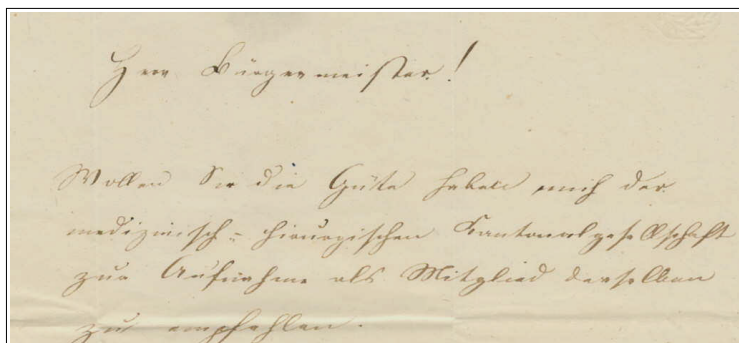 Herr Bürgermeister!
Wollen Sie die Güte haben mich der
medizinisch-chirurgischen Kantonalgesellschaft
zur Aufnahme als Mitglied derselben
zu empfehlen.